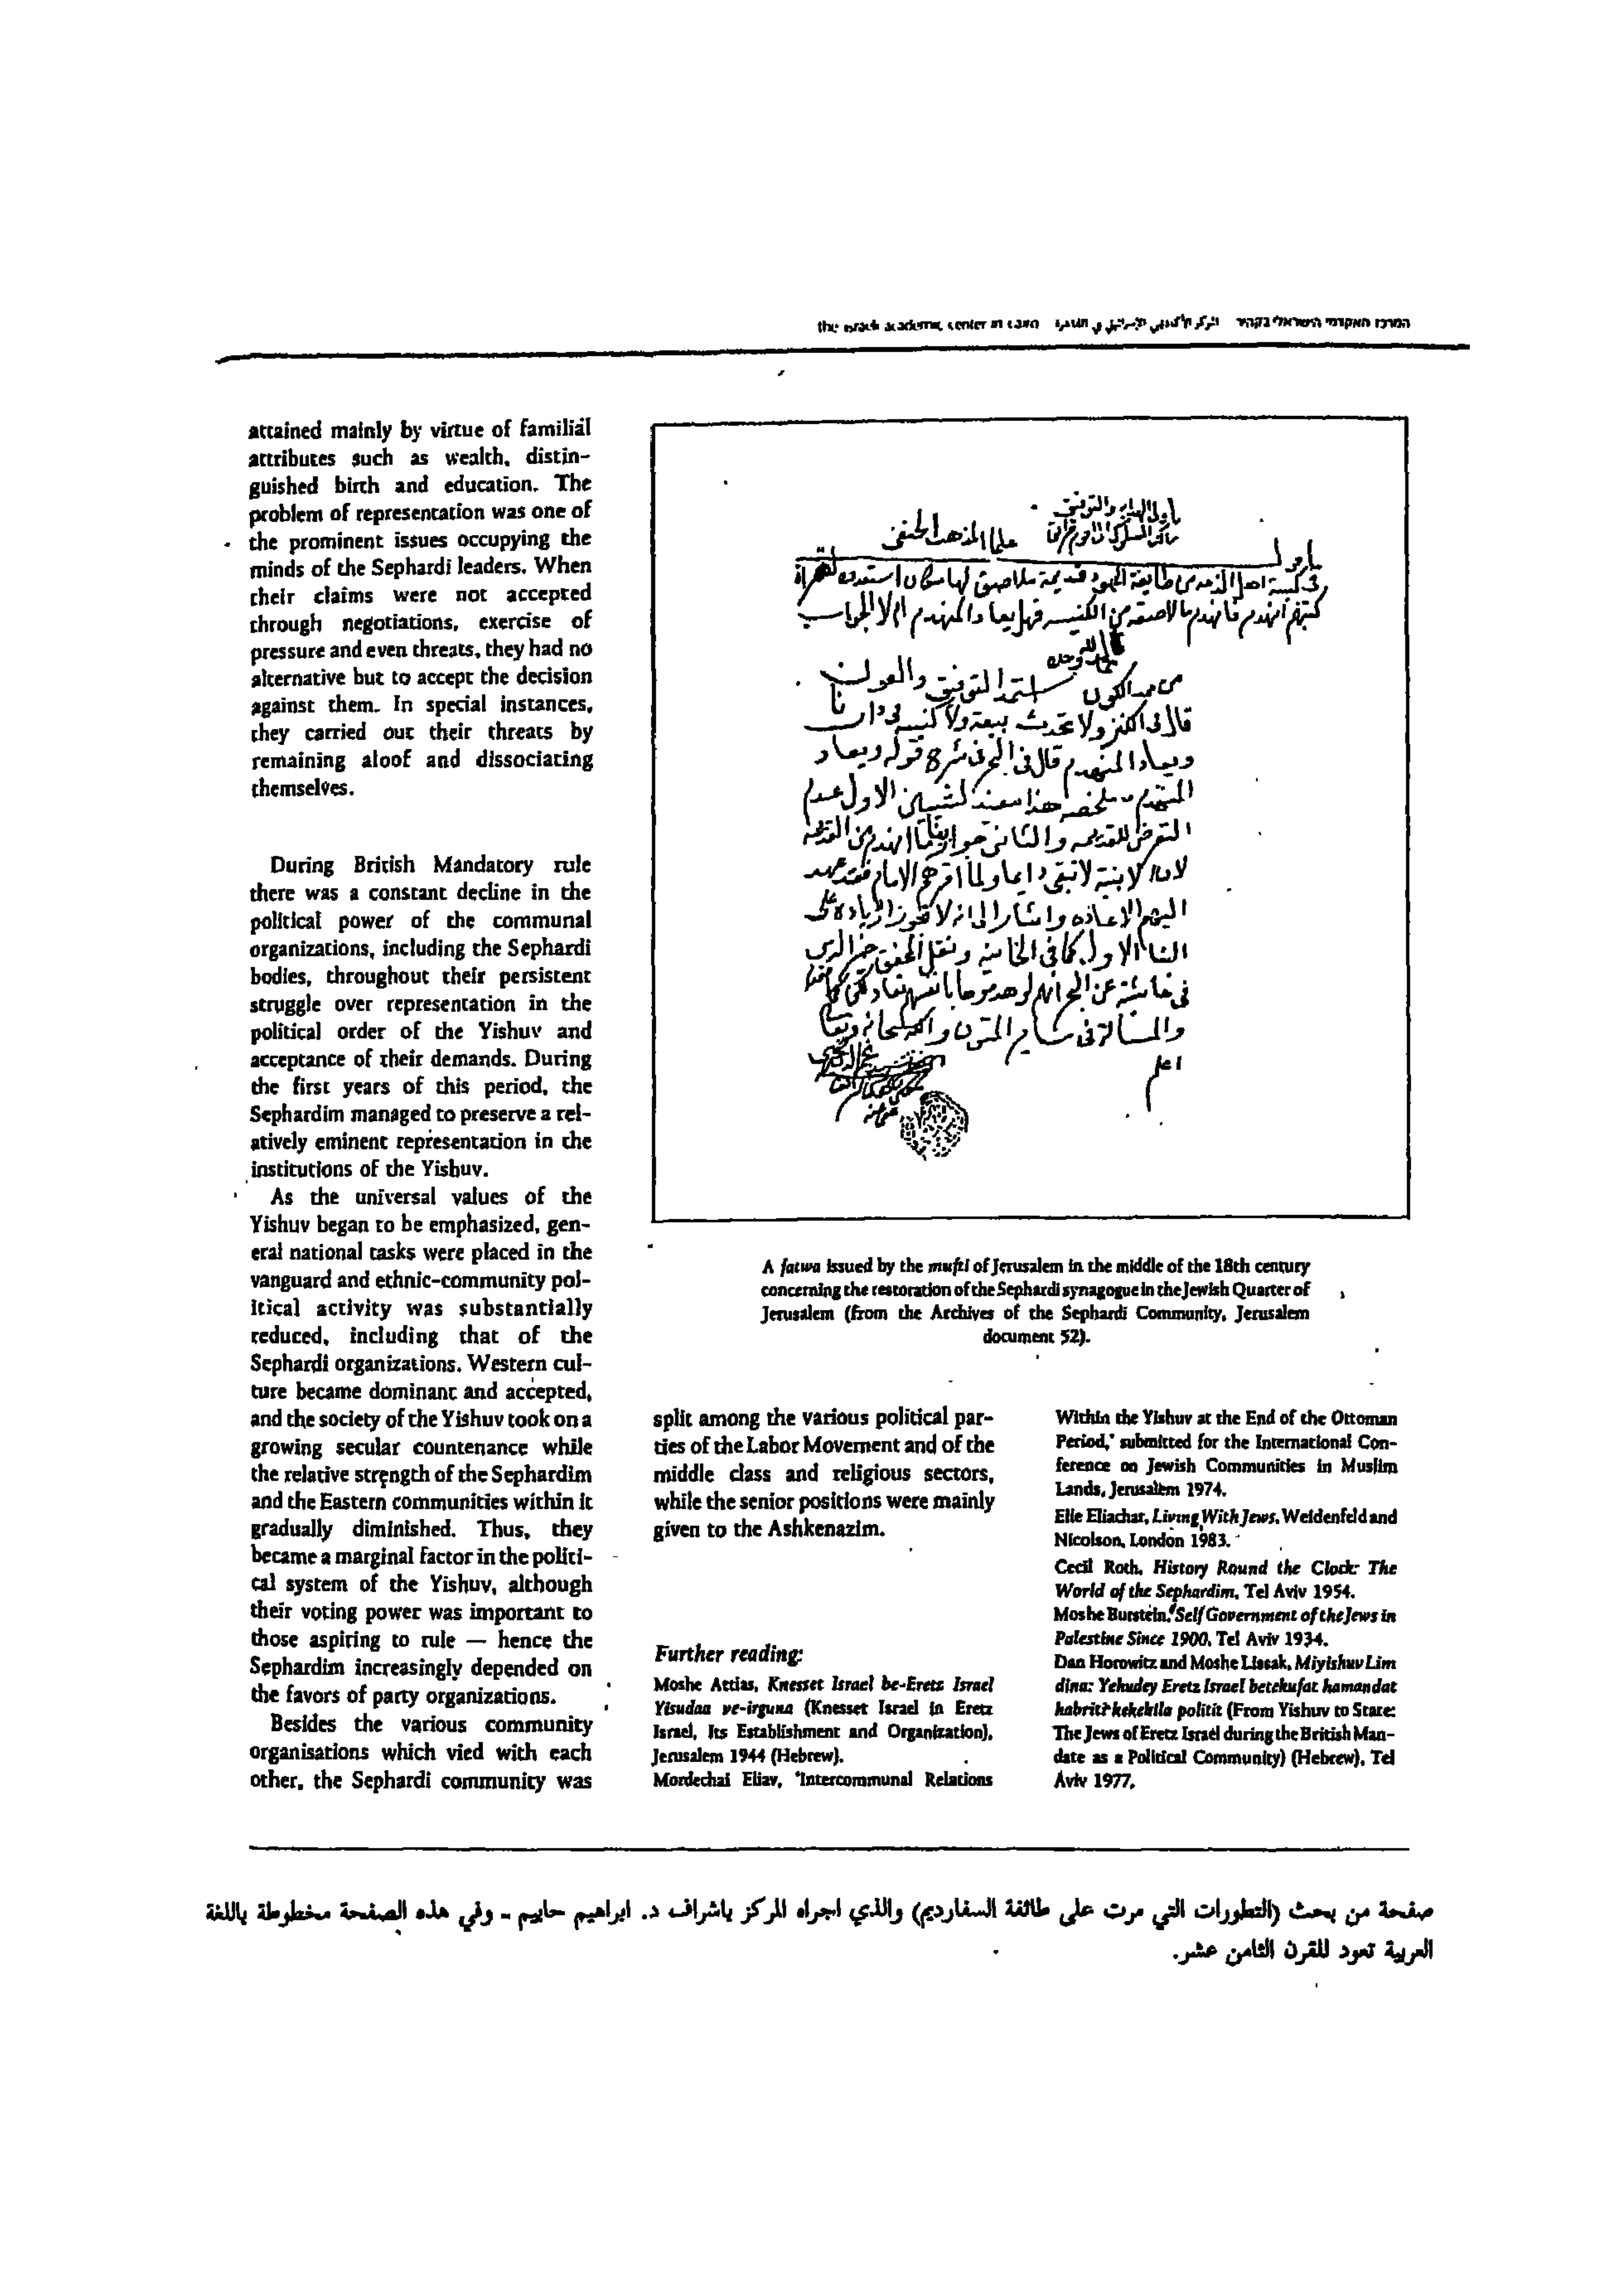 the israeli academic center in cairo المركز الأكاديمي الإسرائيلي في القاهرة המרכז האקדמי הישראלי בקהיר
attained mainly by virtue of familial
attributes such as wealth, distin-
guished birth and education. The
problem of representation was one of
the prominent issues occupying the
minds of the Sephardi leaders. When
their claims were not accepted
through negotiations, exercise of
pressure and even threats, they had no
alternative but to accept the decision
against them. In special instances,
they carried out their threats by
remaining aloof and dissociating
themselves.
During British Mandatory rule
there was a constant decline in the
political power of the communal
organizations, including the Sephardi
bodies, throughout their persistent
struggle over representation in the
political order of the Yishuv and
acceptance of their demands. During
the first years of this period, the
Sephardim managed to preserve a rel-
atively eminent representation in the
institutions of the Yishuv.
As the universal values of the
Yishuv began to be emphasized, gen-
eral national tasks were placed in the
vanguard and ethnic-community pol-
itical activity was substantially
reduced, including that of the
Sephardi organizations. Western cul-
ture became dominant and accepted,
and the society of the Yishuv took on a
growing secular countenance while
the relative strength of the Sephardim
and the Eastern communities within it
gradually diminished. Thus, they
became a marginal factor in the politi-
cal system of the Yishuv, although
their voting power was important to
those aspiring to rule — hence the
Sephardim increasingly depended on
the favors of party organizations.
Besides the various community
organisations which vied with each
other, the Sephardi community was
على المذهب الحنفي
من ممد الكون استمد التوفيق والعون
قال في الكنز ولا تحدث بيعة ولا كنيسة في دارنا
ويعاد المنهدم قال في البحر في شرح قوله ويعاد
A fatwa issued by the mufti of Jerusalem in the middle of the 18th century
concerning the restoration of the Sephardi synagogue in the Jewish Quarter of
Jerusalem (from the Archives of the Sephardi Community, Jerusalem
document 52).
split among the various political par-
ties of the Labor Movement and of the
middle class and religious sectors,
while the senior positions were mainly
given to the Ashkenazim.
Further reading:
Moshe Attias, Knesset Israel be-Eretz Israel
Yisudaa ve-irguna (Knesset Israel in Eretz
Israel, Its Establishment and Organization),
Jerusalem 1944 (Hebrew).
Mordechai Eliav, 'Intercommunal Relations
Within the Yishuv at the End of the Ottoman
Period,' submitted for the International Con-
ference on Jewish Communities in Muslim
Lands, Jerusalem 1974.
Elie Eliachar, Living With Jews, Weidenfeld and
Nicolson, London 1983.
Cecil Roth, History Round the Clock: The
World of the Sephardim, Tel Aviv 1954.
Moshe Burstein, Self Government of the Jews in
Palestine Since 1900, Tel Aviv 1934.
Dan Horowitz and Moshe Lissak, Miyishuv Lim
dina: Yehudey Eretz Israel betekufat hamandat
habriti kekehila politit (From Yishuv to State:
The Jews of Eretz Israel during the British Man-
date as a Political Community) (Hebrew), Tel
Aviv 1977.
صفحة من بحث (التطورات التي مرت على طائفة السفارديم) والذي اجراه المركز باشراف د. ابراهيم حاييم - وفي هذه الصفحة مخطوطة باللغة
العربية تعود للقرن الثامن عشر.